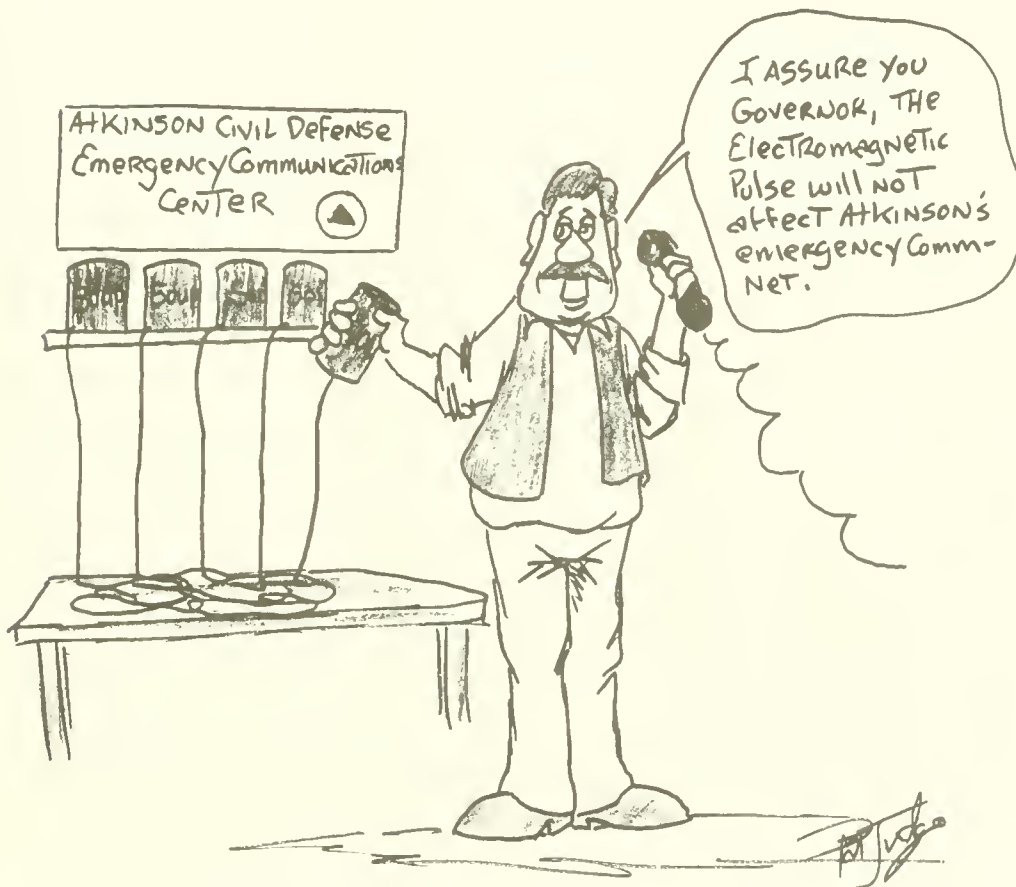 ATKINSON CIVIL DeFeNSe
EmergeNcy CommuNicaTioNs
CeNTeR
Soup Soup
I ASSURE YOU
GOVERNOR, THE
ElecTRomagNeTic
Pulse will NOT
affecT ATKINSON'S
emergeNcy Comm-
NeT.